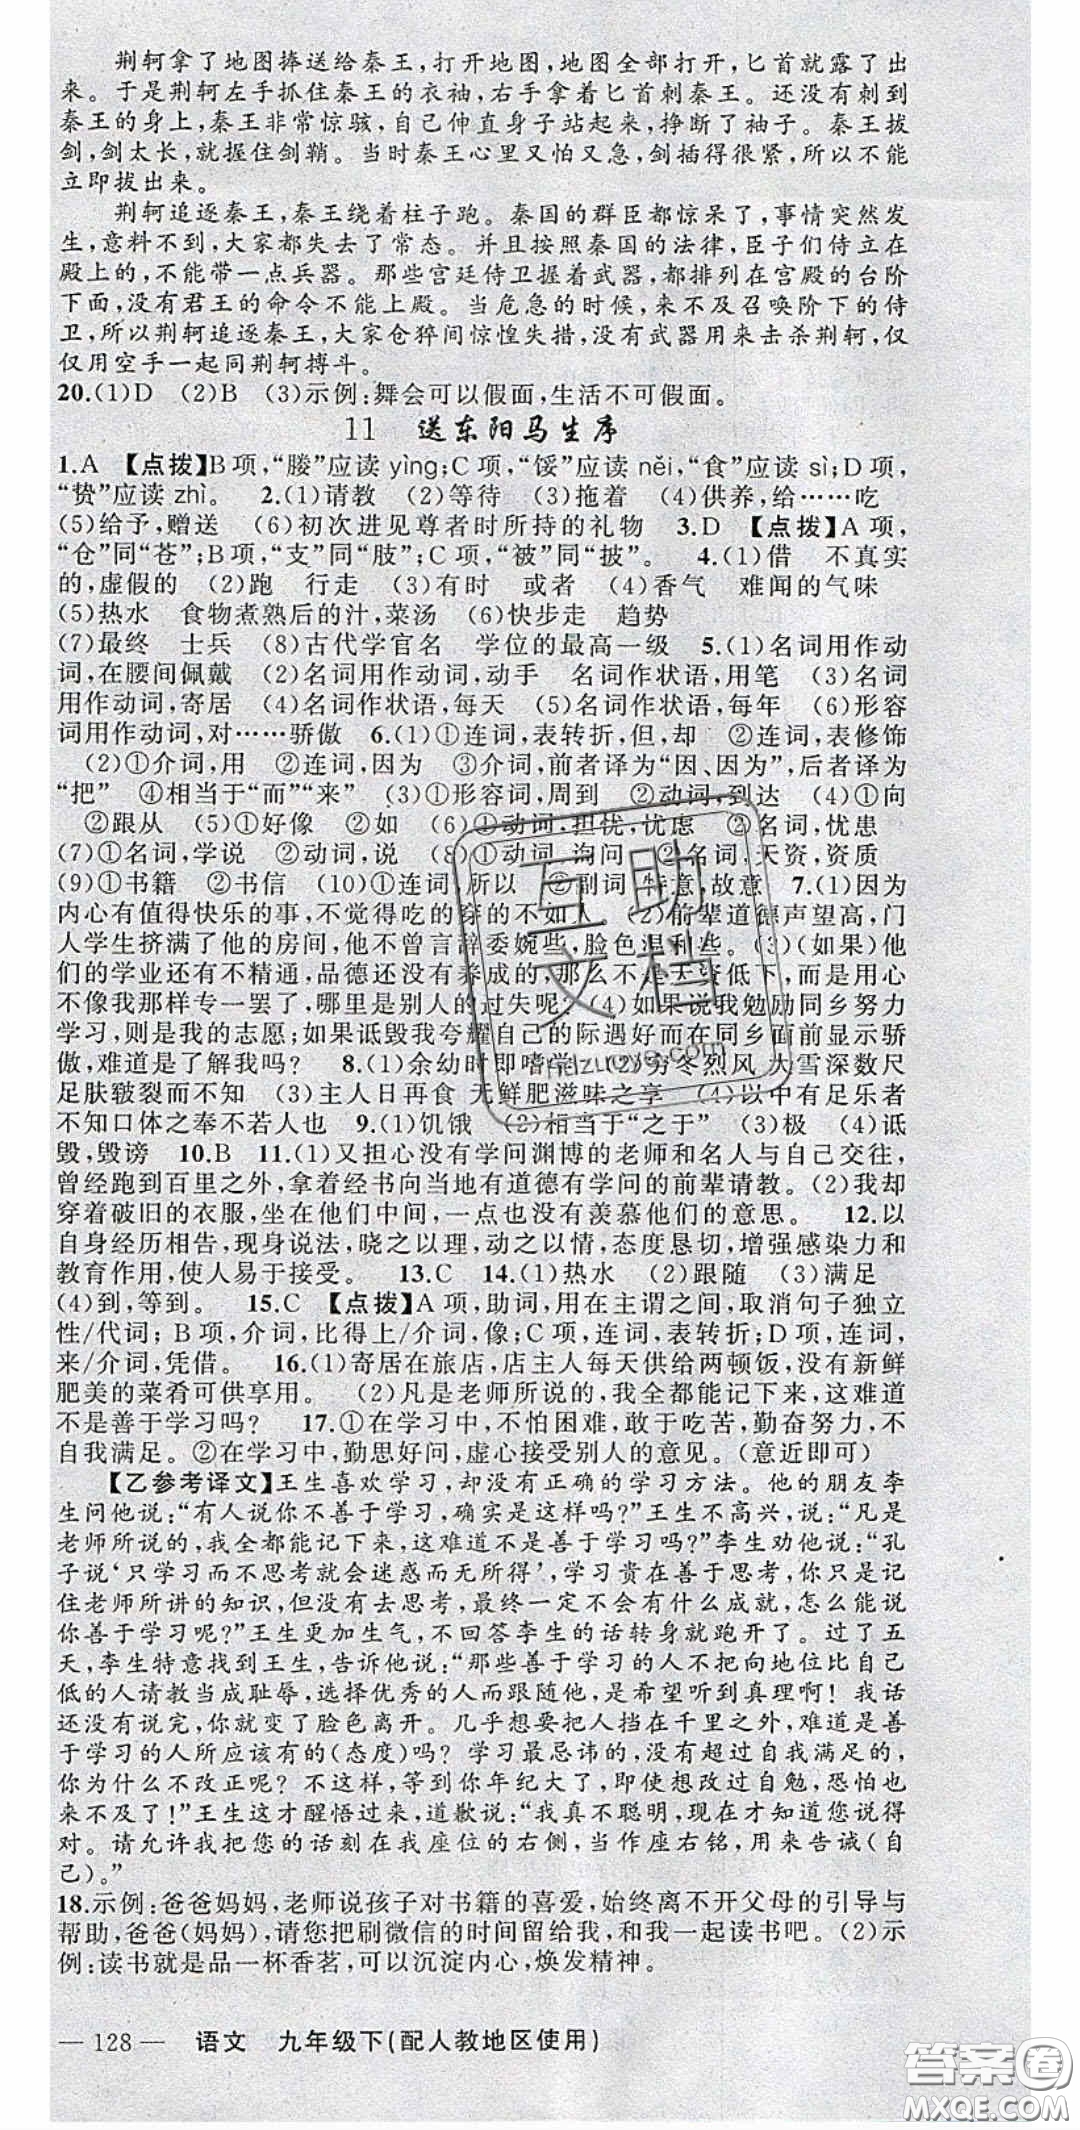 荆轲拿了地图捧送给秦王,打开地图,地图全部打开,匕首就露了出
来。于是荆轲左手抓住秦王的衣袖,右手拿着匕首刺秦王。还没有刺到
秦王的身上,秦王非常惊骇,自己伸直身子站起来,挣断了袖子。秦王拔
剑,剑太长,就握住剑鞘。当时秦王心里又怕又急,剑插得很紧,所以不能
立即拔出来。
荆轲追逐秦王,秦王绕着柱子跑。秦国的群臣都惊呆了,事情突然发
生,意料不到,大家都失去了常态。并且按照秦国的法律,臣子们侍立在
殿上的,不能带一点兵器。那些宫廷侍卫握着武器,都排列在宫殿的台阶
下面,没有君王的命令不能上殿。当危急的时候,来不及召唤阶下的侍
卫,所以荆轲追逐秦王,大家仓猝间惊惶失措,没有武器用来击杀荆轲,仅
仅用空手一起同荆轲搏斗。
20.(1)D (2)B (3)示例:舞会可以假面,生活不可假面。
11 送东阳马生序
1.A 【点拨】B项,“媵”应读yìng;C项,“馁”应读něi,“食”应读sì;D项,
“贽”应读zhì。 2.(1)请教 (2)等待 (3)拖着 (4)供养,给……吃
(5)给予,赠送 (6)初次进见尊者时所持的礼物 3.D 【点拨】A项,
“仓”同“苍”;B项,“支”同“肢”;C项,“被”同“披”。 4.(1)借 不真实
的,虚假的 (2)跑 行走 (3)有时 或者 (4)香气 难闻的气味
(5)热水 食物煮熟后的汁,菜汤 (6)快步走 趋势
(7)最终 士兵 (8)古代学官名 学位的最高一级 5.(1)名词用作动
词,在腰间佩戴 (2)名词用作动词,动手 名词作状语,用笔 (3)名词
用作动词,寄居 (4)名词作状语,每天 (5)名词作状语,每年 (6)形容
词用作动词,对……骄傲 6.(1)①连词,表转折,但,却 ②连词,表修饰
(2)①介词,用 ②连词,因为 ③介词,前者译为“因、因为”,后者译为
“把” ④相当于“而”“来” (3)①形容词,周到 ②动词,到达 (4)①向
②跟从 (5)①好像 ②如 (6)①动词,担忧,忧虑 ②名词,忧患
(7)①名词,学说 ②动词,说 (8)①动词,询问 ②名词,天资,资质
(9)①书籍 ②书信 (10)①连词,所以 ②副词,特意,故意 7.(1)因为
内心有值得快乐的事,不觉得吃的穿的不如人 (2)前辈道德声望高,门
人学生挤满了他的房间,他不曾言辞委婉些,脸色温和些。(3)(如果)他
们的学业还有不精通,品德还没有养成的,那么不是天资低下,而是用心
不像我那样专一罢了,哪里是别人的过失呢? (4)如果说我勉励同乡努力
学习,则是我的志愿;如果诋毁我夸耀自己的际遇好而在同乡面前显示骄
傲,难道是了解我吗? 8.(1)余幼时即嗜学 (2)穷冬烈风 大雪深数尺
足肤皲裂而不知 (3)主人日再食 无鲜肥滋味之享 (4)以中有足乐者
不知口体之奉不若人也 9.(1)饥饿 (2)相当于“之于” (3)极 (4)诋
毁,毁谤 10.B 11.(1)又担心没有学问渊博的老师和名人与自己交往,
曾经跑到百里之外,拿着经书向当地有道德有学问的前辈请教。(2)我却
穿着破旧的衣服,坐在他们中间,一点也没有羡慕他们的意思。 12.以
自身经历相告,现身说法,晓之以理,动之以情,态度恳切,增强感染力和
教育作用,使人易于接受。 13.C 14.(1)热水 (2)跟随 (3)满足
(4)到,等到。 15.C 【点拨】A项,助词,用在主谓之间,取消句子独立
性/代词;B项,介词,比得上/介词,像;C项,连词,表转折;D项,连词,
来/介词,凭借。 16.(1)寄居在旅店,店主人每天供给两顿饭,没有新鲜
肥美的菜肴可供享用。 (2)凡是老师所说的,我全都能记下来,这难道
不是善于学习吗? 17.①在学习中,不怕困难,敢于吃苦,勤奋努力,不
自我满足。②在学习中,勤思好问,虚心接受别人的意见。(意近即可)
【乙参考译文】王生喜欢学习,却没有正确的学习方法。他的朋友李
生问他说:“有人说你不善于学习,确实是这样吗?”王生不高兴,说:“凡是
老师所说的,我全都能记下来,这难道不是善于学习吗?”李生劝他说:“孔
子说‘只学习而不思考就会迷惑而无所得’,学习贵在善于思考,你只是记
住老师所讲的知识,但没有去思考,最终一定不会有什么成就,怎么能说
你善于学习呢?”王生更加生气,不回答李生的话转身就跑开了。过了五
天,李生特意找到王生,告诉他说:“那些善于学习的人不把向地位比自己
低的人请教当成耻辱,选择优秀的人而跟随他,是希望听到真理啊!我话
还没有说完,你就变了脸色离开。几乎想要把人挡在千里之外,难道是善
于学习的人所应该有的(态度)吗?学习最忌讳的,莫过于自我满足的,
你为什么不改正呢?不这样,等到你年纪大了,即使想改过自勉,恐怕也
来不及了!”王生这才醒悟过来,道歉说:“我真不聪明,现在才知道您说得
对。请允许我把您的话刻在我座位的右侧,当作座右铭,用来告诫(自
己)。”
18.示例:爸爸妈妈,老师说孩子对书籍的喜爱,始终离不开父母的引导与
帮助,爸爸(妈妈),请您把刷微信的时间留给我,和我一起读书吧。(2)示
例:读书就是品一杯香茗,可以沉淀内心,焕发精神。
— 128 — 语文 九年级下(配人教地区使用)
互助
文档
答案圈
MXQE.COM